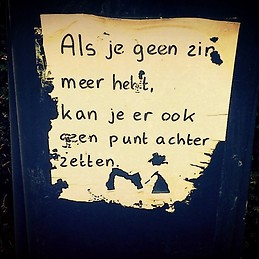 Als je geen zin
meer hebt,
kan je er ook
geen punt achter
zetten.